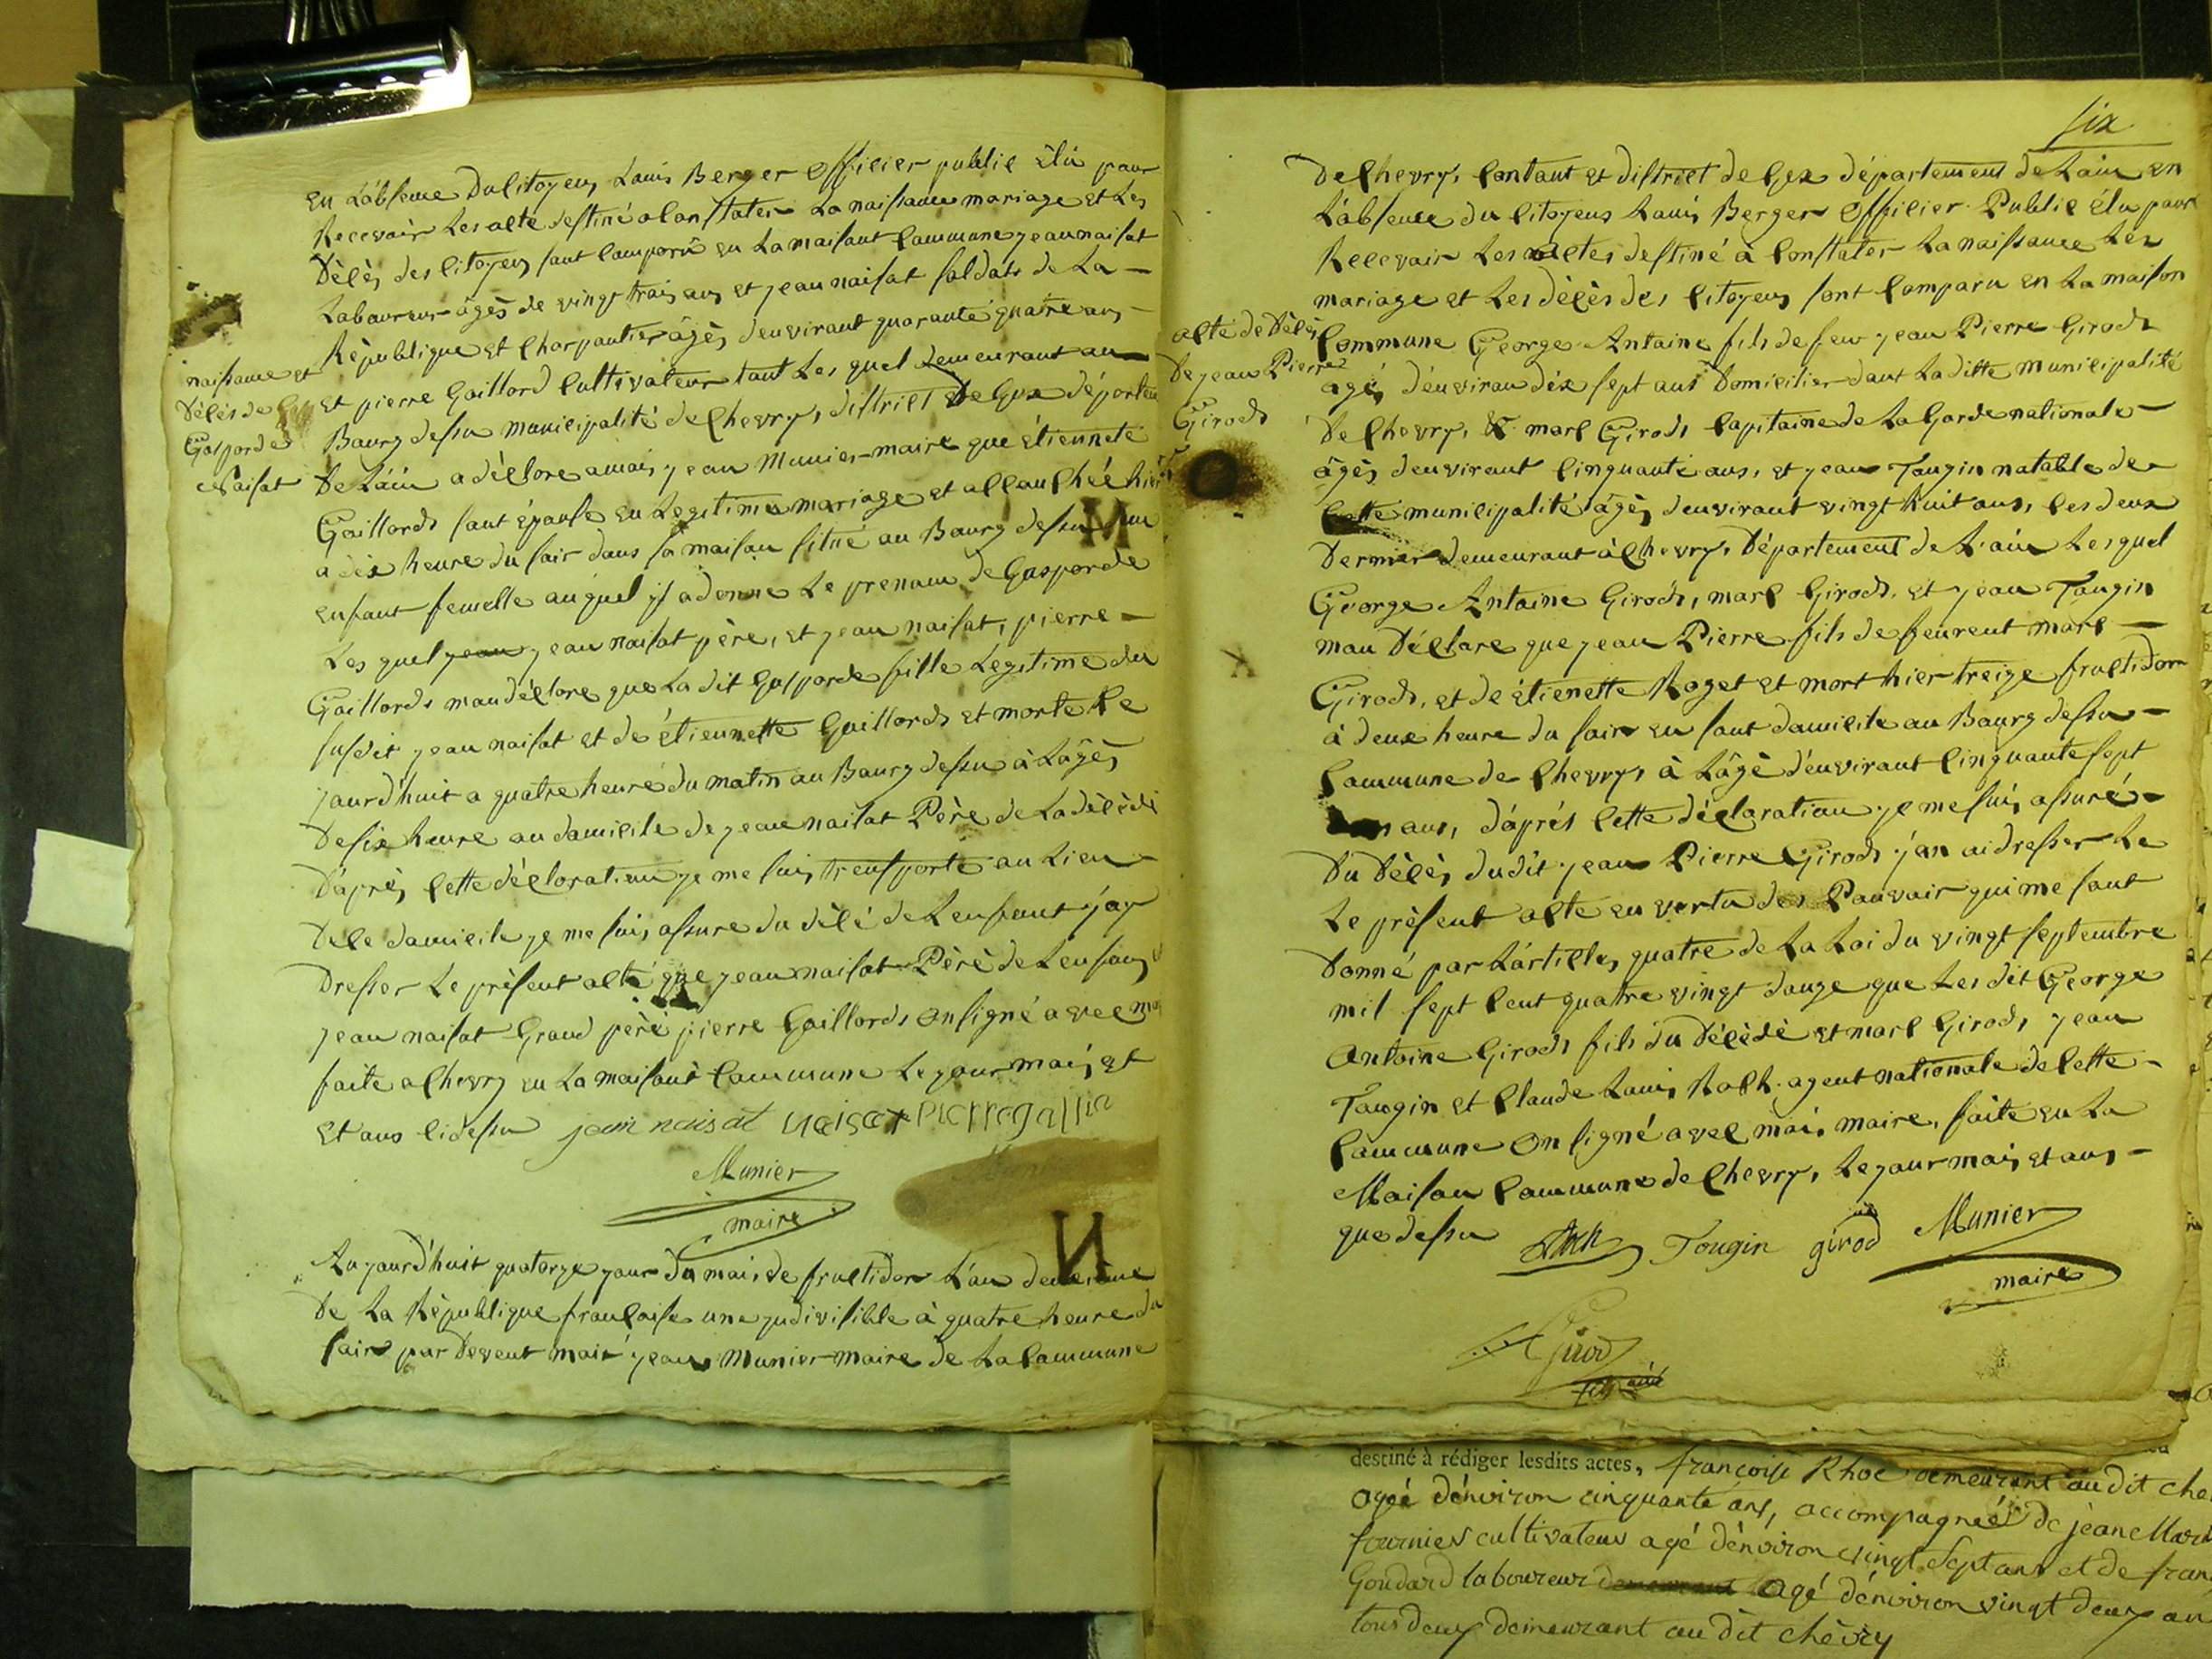 En L'absence Du Citoyens Louis Berger officier public élu pour
Recevoir Les acte destiné a Constater La naissance mariage et Les
Décès des Citoyens sont Comparu en La maisont Commune jean naisat
Laboureur âgés de vingt trois ans et jean naisat soldats de La
République et Charpantier âgés denviront quarante quatre ans
naissance et
Décès de
Gasparde
Naisat
et pierre Gaillard Cultivateur tout Les quel demeurant au
Bourg dessu municipalité de Chevry, district De Gex département
De Lain a déclare a mois jean Munier maire que étiennete
Gaillards sont épouse en Legitime mariage et accouchée hier
a dix heure du soir dans sa maison situé au Bourg dessu
enfant femelle auquel jl a donne Le prenom de Gasparde
Les quel jean jean naisat père, et jean naisat, pierre
Gaillards mon déclare que La dit Gasparde fille Legitime du
susdit jean naisat et de étiennette Gaillards et morte Ce
jourd'huit a quatre heure du matin au Bourg dessu à Lâgés
De six heure au domicile de jean naisat Père de La décédé
D'après Cette déclaration je me suis transporté au Lieu
De Ce domicile je me suis assure du décé de Lenfant j'ay
Dresser Le présent acte que jean naisat Père de Lenfant
jean naisat Grand père pierre Gaillards on signé avec moi
faite a Chevry en La maisont Commune Le jour mois et
Et ans Cidessu jean naisat naisat Pierre gallia
Munier
maire
Aujourd'huit quatorze jour du mois de fructidor L'an deuxième
De La République française une jndivisible à quatre heure du
soir par devent moi jean Munier maire de La Commune
six
De Chevry, Contant et district de Gex département de Lain en
L'absence du Citoyens Louis Berger officier Public élu pour
Recevoir Les actes destiné à Constater La naissance Les
mariage et Les décès des Citoyens sont Comparu en La maison
acte de Décès
De jean Pierre
Girods
Commune George Antoine fils de feu jean Pierre Girods
agés d'environ dix sept ans Domicilier dant La ditte municipalité
De Chevry, & marc Girods Capitaine de La Garde nationale
âgés denviront Cinquante ans, et jean Tougin notable de
Cette municipalité âgés denviront vingt huit ans, les deux
Dernier demeurant à Chevry, Département de Lain Lesquel
George Antoine Girods, marc Girods, et jean Tougin
mon Déclare que jean Pierre fils de feurent marc
Girods, et de étienette Roget et mort hier treize fructidor
à deux heure du soir en sont domicile au Bourg dessu
Commune de Chevry, à Lâgé d'environt Cinquante sept
ans, d'après Cette déclaration je me suis assuré
Du Décès dudit jean Pierre Girods j'an ai dresser Le
Le présent acte en vertu des Pouvoir qui me sont
Donné par L'articles quatre de La Loi du vingt septembre
mil sept Cent quatre vingt douze que Les dit George
Antoine Girods fils du Décédé et marc Girods jean
Tougin et Claude Louis Roch agent nationale de Cette
Commune on signé avec moi, maire, faite en La
Maison Commune de Chevry, Le jour mois et ans
que dessu Roch Tougin girod Munier
maire
Girod
fils ainé
destiné à rédiger lesdits actes, françoise Rhoc demeurant au dit che
agé dénviron cinquante ans, accompagnéé de jeane Marie
fournier cultivateur agé dénviron vingt sept ans et de fran
Goudard laboureur demeurant agé dénviron vingt deux an
tous deux demeurant au dit chévry